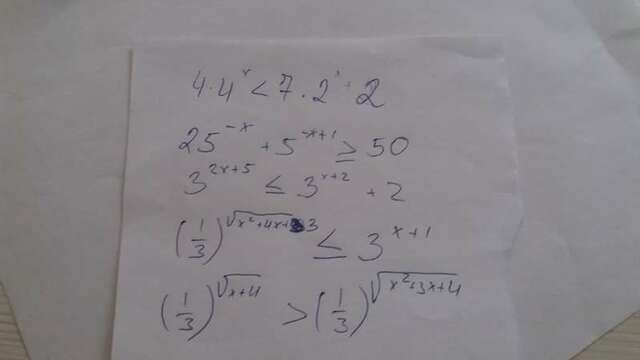 4·4^x < 7·2^x - 2
25^{-x} + 5^{-x+1} ≥ 50
3^{2x+5} ≤ 3^{x+2} + 2
(1/3)^{√(x²+4x+3)} ≤ 3^{x+1}
(1/3)^{√(x+4)} > (1/3)^{√(x²+3x+4)}